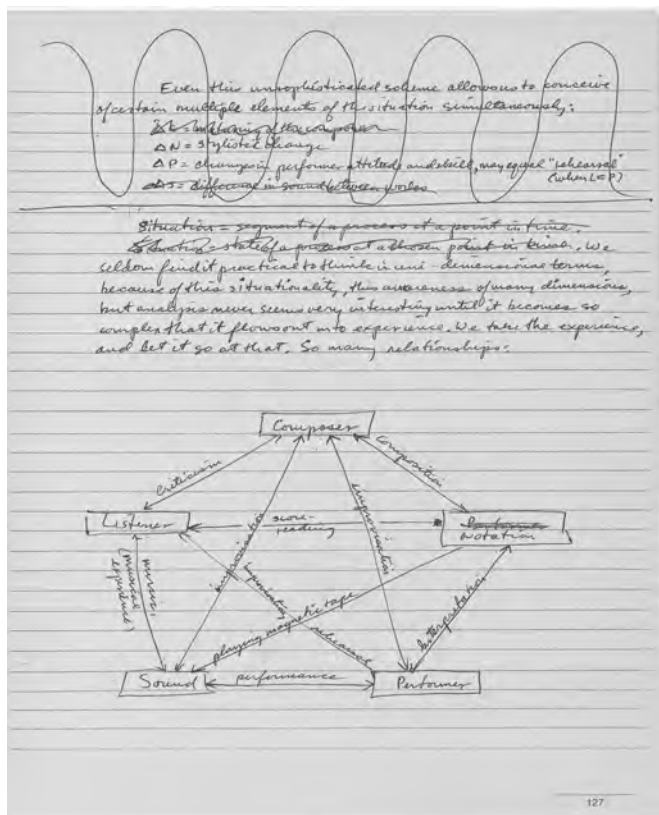 Even this unsophisticated scheme allows us to conceive
of certain multiple elements of the situation simultaneously:
of the composer
Δ N = stylistic change
Δ P = changes in performer attitude and skill, may equal "rehearsal"
(when L = P)
Δ S = difference in sound between works
Situation = segment of a process at a point in time.
Situation = state of a process at a chosen point in time. We
seldom find it practical to think in uni-dimensional terms,
because of this situationality, this awareness of many dimensions,
but analysis never seems very interesting until it becomes so
complex that it flows out into experience. We take the experience,
and let it go at that. So many relationships:
Composer
criticism
composition
Listener
score-
reading
Performer
Notation
improvisation
improvisation
music,
(musical
experience)
rehearsal
playing magnetic tape
Interpretation
Sound
performance
Performer
127